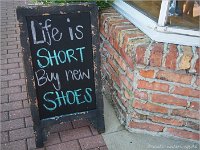 Life is
SHORT
Buy new
SHOES